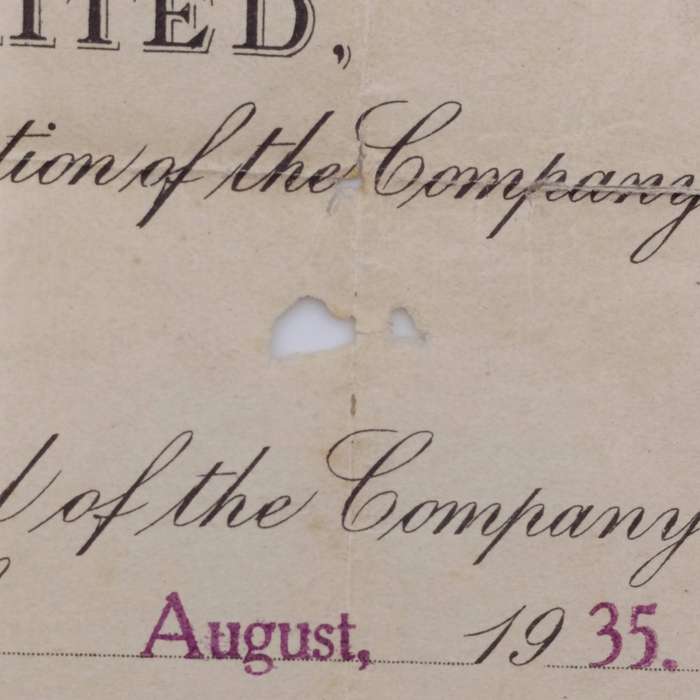 ITED,
tion of the Company
of the Company
August, 1935.